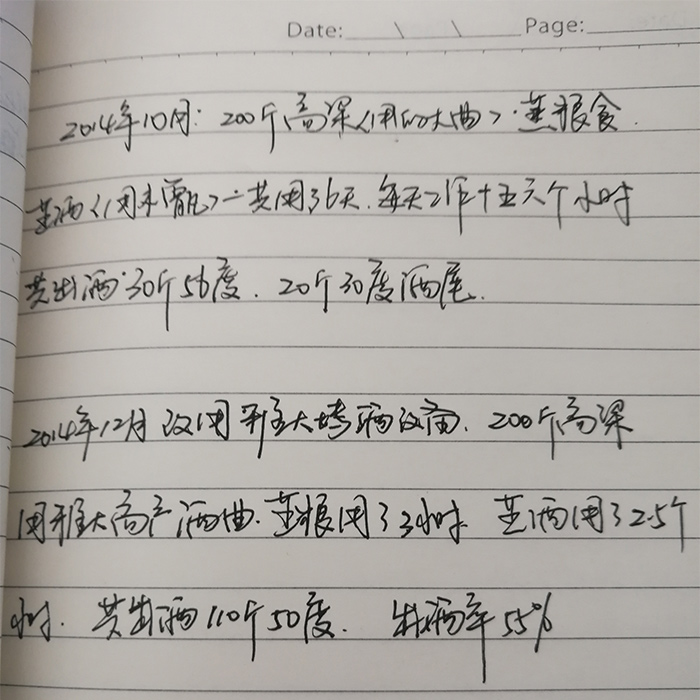 Date: \ \ Page:
2014年10月: 200斤高粱(用的大曲)·蒸粮食
蒸酒(用木甑)一共用了6天.每天工作十五六个小时
共出酒:30斤56度. 20斤30度酒尾.
2014年12月改用雅大烤酒设备. 200斤高粱
用雅大高产酒曲.蒸粮用了3小时 蒸酒用了2.5个
小时. 共出酒110斤50度. 出酒率55%